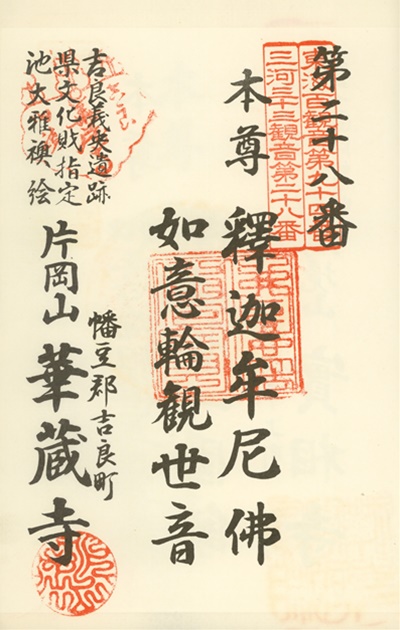 第二十八番
東海百観音第九十四番
三河三十三観音第二十八番
本尊 釋迦牟尼佛
如意輪觀世音
吉良義央遺跡
県文化財指定
池大雅襖絵
幡豆郡吉良町
片岡山 華蔵寺